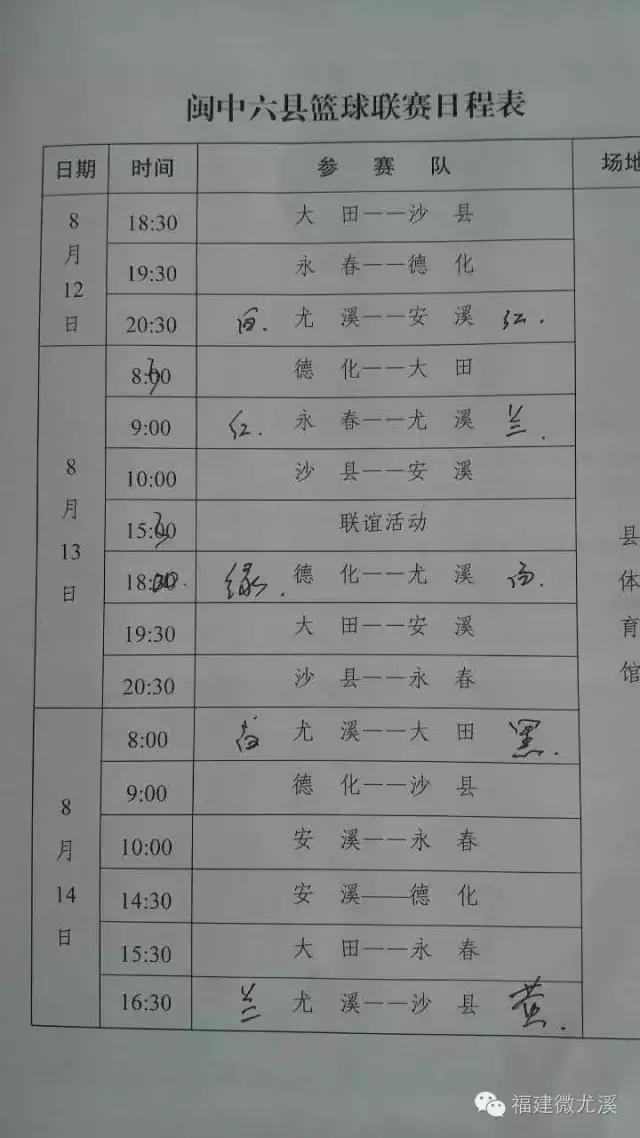 闽中六县篮球联赛日程表
日期 时间 参赛队 场地
8月12日
18:30 大田——沙县
19:30 永春——德化
20:30 白. 尤溪——安溪 红.
8月13日
8: 德化——大田
9:00 红. 永春——尤溪 兰.
10:00 沙县——安溪
15: 联谊活动
18: 绿. 德化——尤溪 白.
19:30 大田——安溪
20:30 沙县——永春
8月14日
8:00 白 尤溪——大田 黑.
9:00 德化——沙县
10:00 安溪——永春
14:30 安溪——德化
15:30 大田——永春
16:30 兰 尤溪——沙县 黄.
县体育馆
福建微尤溪